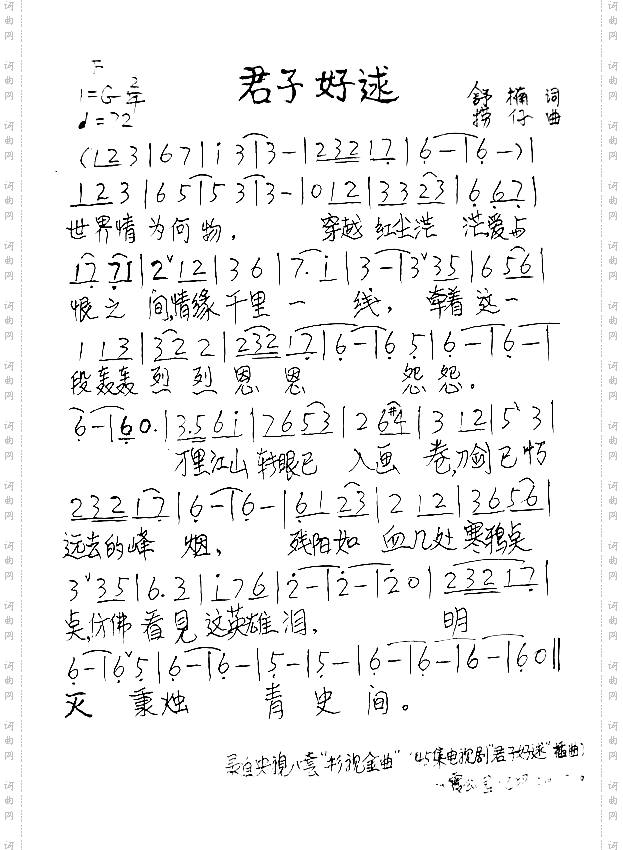 君子好逑
F
1=G 2/4
♩=72
舒楠 词
捞仔 曲
(1 2 3 | 6 7 | i 3 | 3 - | 2 3 2 2 1 7 | 6 - | 6 - ) |
1 2 3 | 6 5 | 5 3 | 3 - | 0 1 2 | 3 3 2 3 | 6 6 7 |
世界情 为何 物, 穿越 红尘茫 茫爱与
1 7 7 1 | 2 ˅ 1 2 | 3 6 | 7 . i | 3 - | 3 ˅ 3 5 | 6 5 6 |
恨之 间,情缘 千里 一 线, 牵着 这一
1 1 3 | 3 2 2 | 2 3 2 1 7 | 6 - | 6 5 | 6 - | 6 - |
段轰轰 烈 烈 恩 恩 怨 怨。
6 - | 6 0 . | 3 . 5 6 i | 7 6 5 3 | 2 6 #4 | 3 1 2 | 5 ˅ 3 |
万里江山 转眼已 入画 卷,刀剑 已 惊
2 3 2 2 1 7 | 6 - | 6 - | 6 1 2 3 | 2 1 2 | 3 6 5 6 |
远去的峰 烟, 残阳如 血几处 寒鸦点
3 ˅ 3 5 | 6 . 3 | i 7 6 | 2 - | 2 - | 2 0 | 2 3 2 1 7 |
点,仿佛 看 见 这英雄 泪, 明
6 - | 6 ˅ 5 | 6 - | 6 - | 5 - | 5 - | 6 - | 6 - | 6 - | 6 0 ‖
灭 秉烛 青 史 间。
录自央视八套"影视金曲" (45集电视剧"君子好逑"插曲)
词曲网